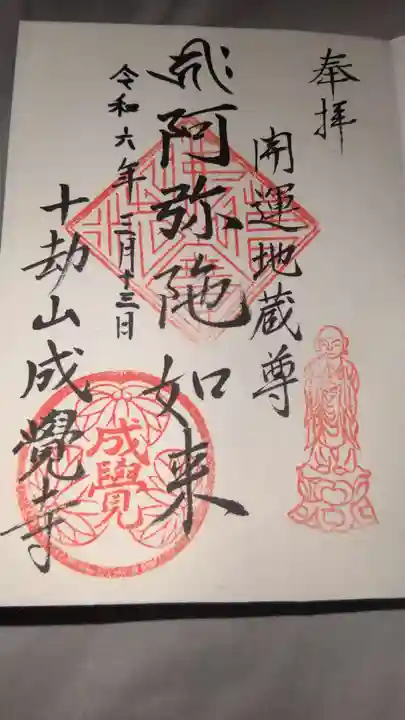 奉拝
開運地蔵尊
阿弥陀如来
令和六年三月十三日
十劫山成覺寺
成覺